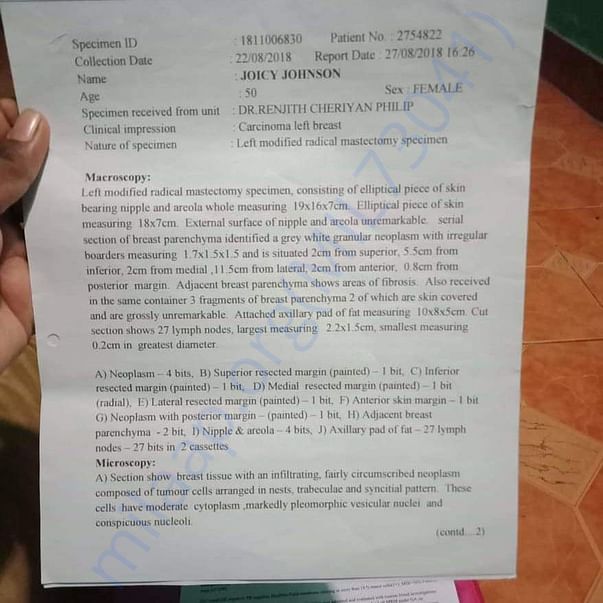 Specimen ID : 1811006830 Patient No. : 2754822
Collection Date : 22/08/2018 Report Date : 27/08/2018 16:26
Name : JOICY JOHNSON
Age : 50 Sex : FEMALE
Specimen received from unit : DR.RENJITH CHERIYAN PHILIP
Clinical impression : Carcinoma left breast
Nature of specimen : Left modified radical mastectomy specimen
Macroscopy:
Left modified radical mastectomy specimen, consisting of elliptical piece of skin
bearing nipple and areola whole measuring 19x16x7cm. Elliptical piece of skin
measuring 18x7cm. External surface of nipple and areola unremarkable. serial
section of breast parenchyma identified a grey white granular neoplasm with irregular
boarders measuring 1.7x1.5x1.5 and is situated 2cm from superior, 5.5cm from
inferior, 2cm from medial ,11.5cm from lateral, 2cm from anterior, 0.8cm from
posterior margin. Adjacent breast parenchyma shows areas of fibrosis. Also received
in the same container 3 fragments of breast parenchyma 2 of which are skin covered
and are grossly unremarkable. Attached axillary pad of fat measuring 10x8x5cm. Cut
section shows 27 lymph nodes, largest measuring 2.2x1.5cm, smallest measuring
0.2cm in greatest diameter.
A) Neoplasm – 4 bits, B) Superior resected margin (painted) – 1 bit, C) Inferior
resected margin (painted) – 1 bit, D) Medial resected margin (painted) – 1 bit
(radial), E) Lateral resected margin (painted) – 1 bit, F) Anterior skin margin – 1 bit
G) Neoplasm with posterior margin – (painted) – 1 bit, H) Adjacent breast
parenchyma - 2 bit, I) Nipple & areola – 4 bits, J) Axillary pad of fat – 27 lymph
nodes – 27 bits in 2 cassettes
Microscopy:
A) Section show breast tissue with an infiltrating, fairly circumscribed neoplasm
composed of tumour cells arranged in nests, trabeculae and syncitial pattern. These
cells have moderate cytoplasm ,markedly pleomorphic vesicular nuclei and
conspicuous nucleoli.
(contd...2)